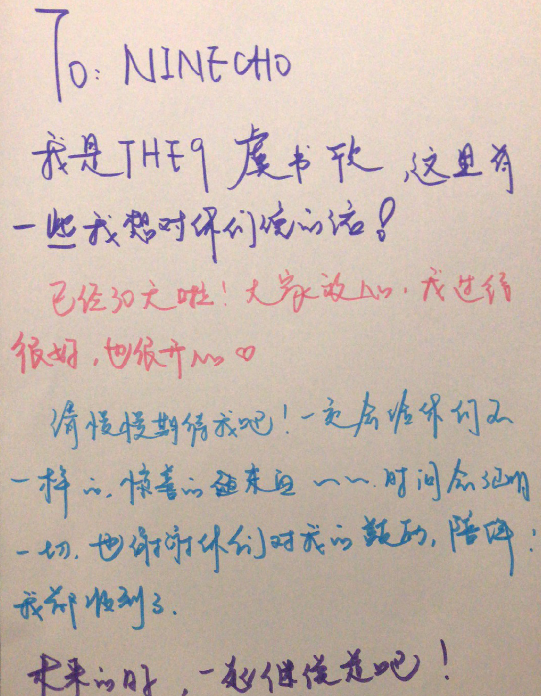 To: NINECHO
我是THE9 虞书欣,这里有
一些我想对你们说的话!
已经30天啦!大家放心,我过得
很好,也很开心♡
请慢慢期待我吧!一定会给你们不
一样的,惊喜的 ~~ 时间会证明
一切.也谢谢你们对我的鼓励,陪伴:
我都收到了.
未来的时,一起继续走吧!